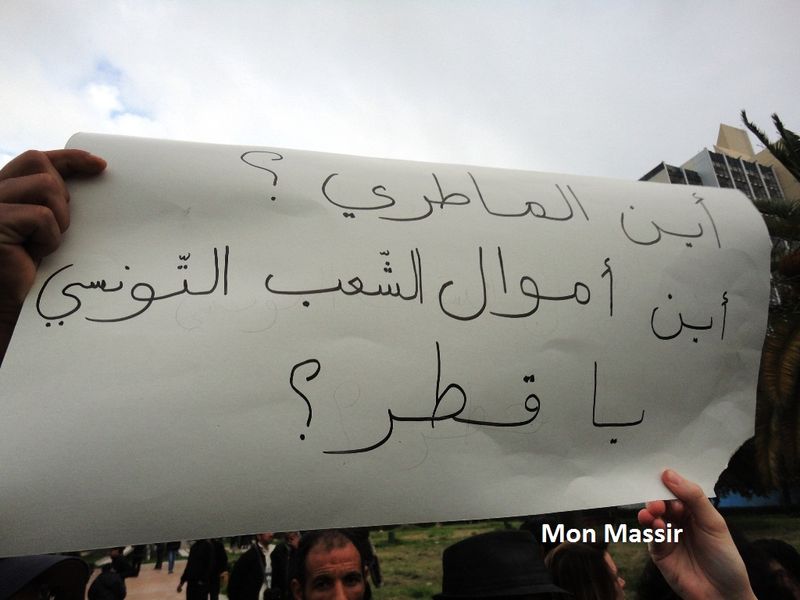 أين الماطري ؟
أين أموال الشّعب التّونسي
يا قطر ؟
Mon Massir